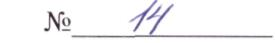 № 14